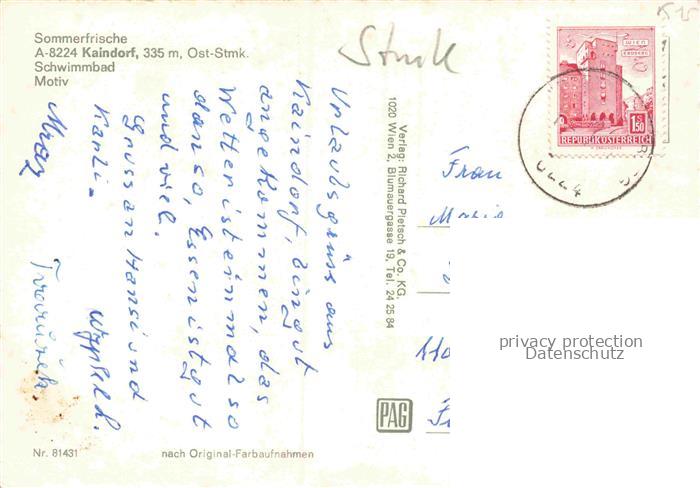 Sommerfrische
A-8224 Kaindorf, 335 m, Ost-Stmk.
Schwimmbad
Motiv
Stmk
Urlaubsgrüss aus
Kaindorf, sin gut
angekommen, das
Wetter ist einmal so
dan so, Essen ist gut
und viel.
Gruss an Hansi und
Karli -
Verlag: Richard Pietsch & Co. KG,
1020 Wien 2, Blumauergasse 19, Tel. 24 25 84
WIEN
ERDBERG
1.50
REPUBLIK ÖSTERREICH
8224
Frau
Marie
PAG
Nr. 81431
nach Original-Farbaufnahmen
privacy protection
Datenschutz